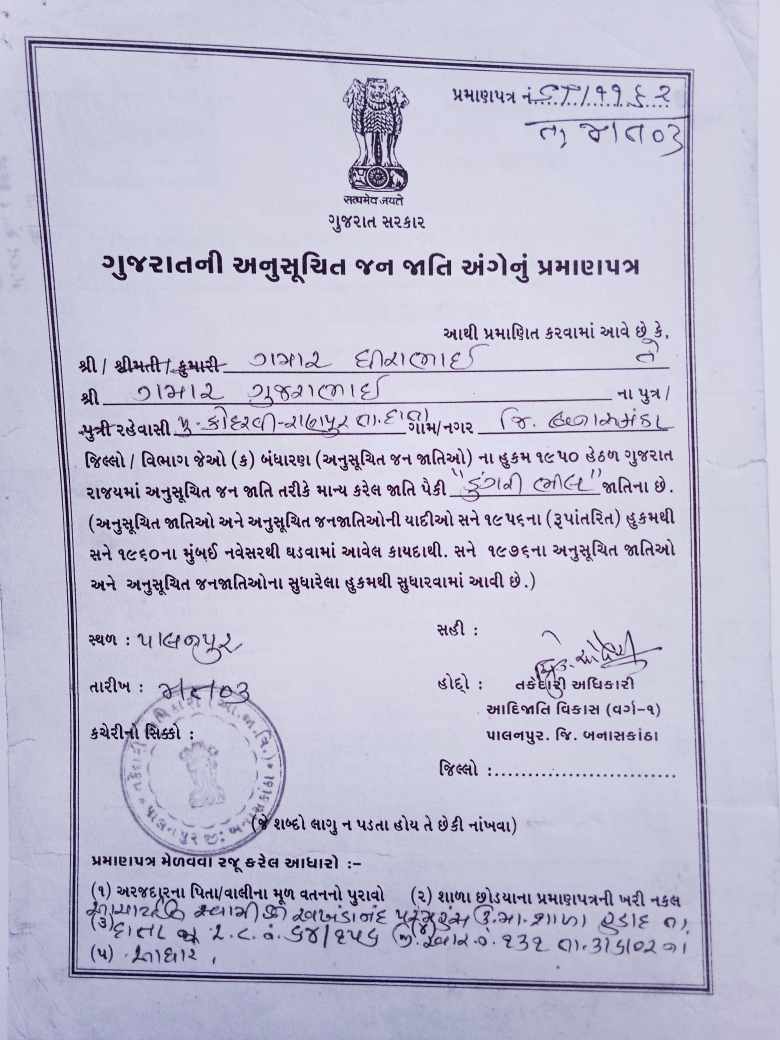 પ્રમાણપત્ર નં. ૬૧/૧૧૬૨
તા.
સત્યમેવ જયતે
ગુજરાત સરકાર
ગુજરાતની અનુસૂચિત જન જાતિ અંગેનું પ્રમાણપત્ર
આથી પ્રમાણિત કરવામાં આવે છે કે,
શ્રી / શ્રીમતી / કુમારી ગમાર ધીરાભાઈ તે
શ્રી ગમાર ગુજરાભાઈ ના પુત્ર /
પુત્રી રહેવાસી મુ. કોદરવી-રાણપુર તા.દાતા ગામ/નગર જિ. બનાસકાંઠા
જિલ્લો / વિભાગ જેઓ (ક) બંધારણ (અનુસૂચિત જન જાતિઓ) ના હુકમ ૧૯૫૦ હેઠળ ગુજરાત
રાજયમાં અનુસૂચિત જન જાતિ તરીકે માન્ય કરેલ જાતિ પૈકી "ડુંગરી ભીલ" જાતિના છે.
(અનુસૂચિત જાતિઓ અને અનુસૂચિત જનજાતિઓની યાદીઓ સને ૧૯૫૬ના (રૂપાંતરિત) હુકમથી
સને ૧૯૬૦ના મુંબઈ નવેસરથી ઘડવામાં આવેલ કાયદાથી. સને ૧૯૭૬ના અનુસૂચિત જાતિઓ
અને અનુસૂચિત જનજાતિઓના સુધારેલા હુકમથી સુધારવામાં આવી છે.)
સ્થળ : પાલનપુર
સહી :
તારીખ :
હોદ્દો : તકેદારી અધિકારી
આદિજાતિ વિકાસ (વર્ગ-૧)
કચેરીનો સિક્કો :
પાલનપુર. જિ. બનાસકાંઠા
જિલ્લો :
(જે શબ્દો લાગુ ન પડતા હોય તે છેકી નાંખવા)
પ્રમાણપત્ર મેળવવા રજૂ કરેલ આધારો :-
(૧) અરજદારના પિતા/વાલીના મૂળ વતનનો પુરાવો (૨) શાળા છોડયાના પ્રમાણપત્રની ખરી નકલ
આચાર્યશ્રી સ્વામીશ્રી અખંડાનંદ પરમહંસ ઉ.મા.શાળા હડાદ તા.
(૩) દાતા ર.નં. ૬૪/૨૫૬ (૪) જા.નં. ૧૩૨ તા.
(૫) આધારે.